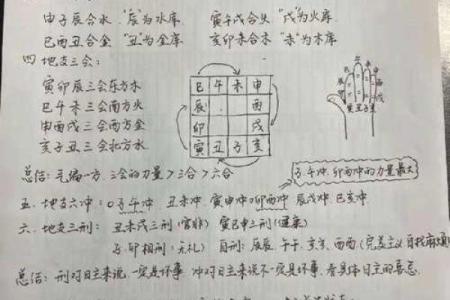 申子辰合水 "辰"为水库 寅午戌合火 "戌"为火库
巳酉丑合金 "丑"为金库 亥卯未合木 "未"为木库
四 地支三会:
寅卯辰三会东方木
巳午未三会南方火
申酉戌三会西方金
亥子丑三会北方水
巳 午 未 申
辰 酉
卯 戌
寅 丑 子 亥
总结: 三会的力量>三合>六合
子午冲、卯酉冲的力量最大
五、地支六冲: 子午冲 丑未冲、寅申冲、卯酉冲 辰戌冲 巳亥冲
六、地支三刑: 丑未戌三刑(官非) 寅巳申三刑(健康)
子卯相刑(无礼) 自刑: 辰辰、午午、亥亥、酉酉(完美主义 自找麻烦)
总结: 刑对日主来说,一定是坏事 冲对日主来说不一定是坏事、看具体日主的喜忌